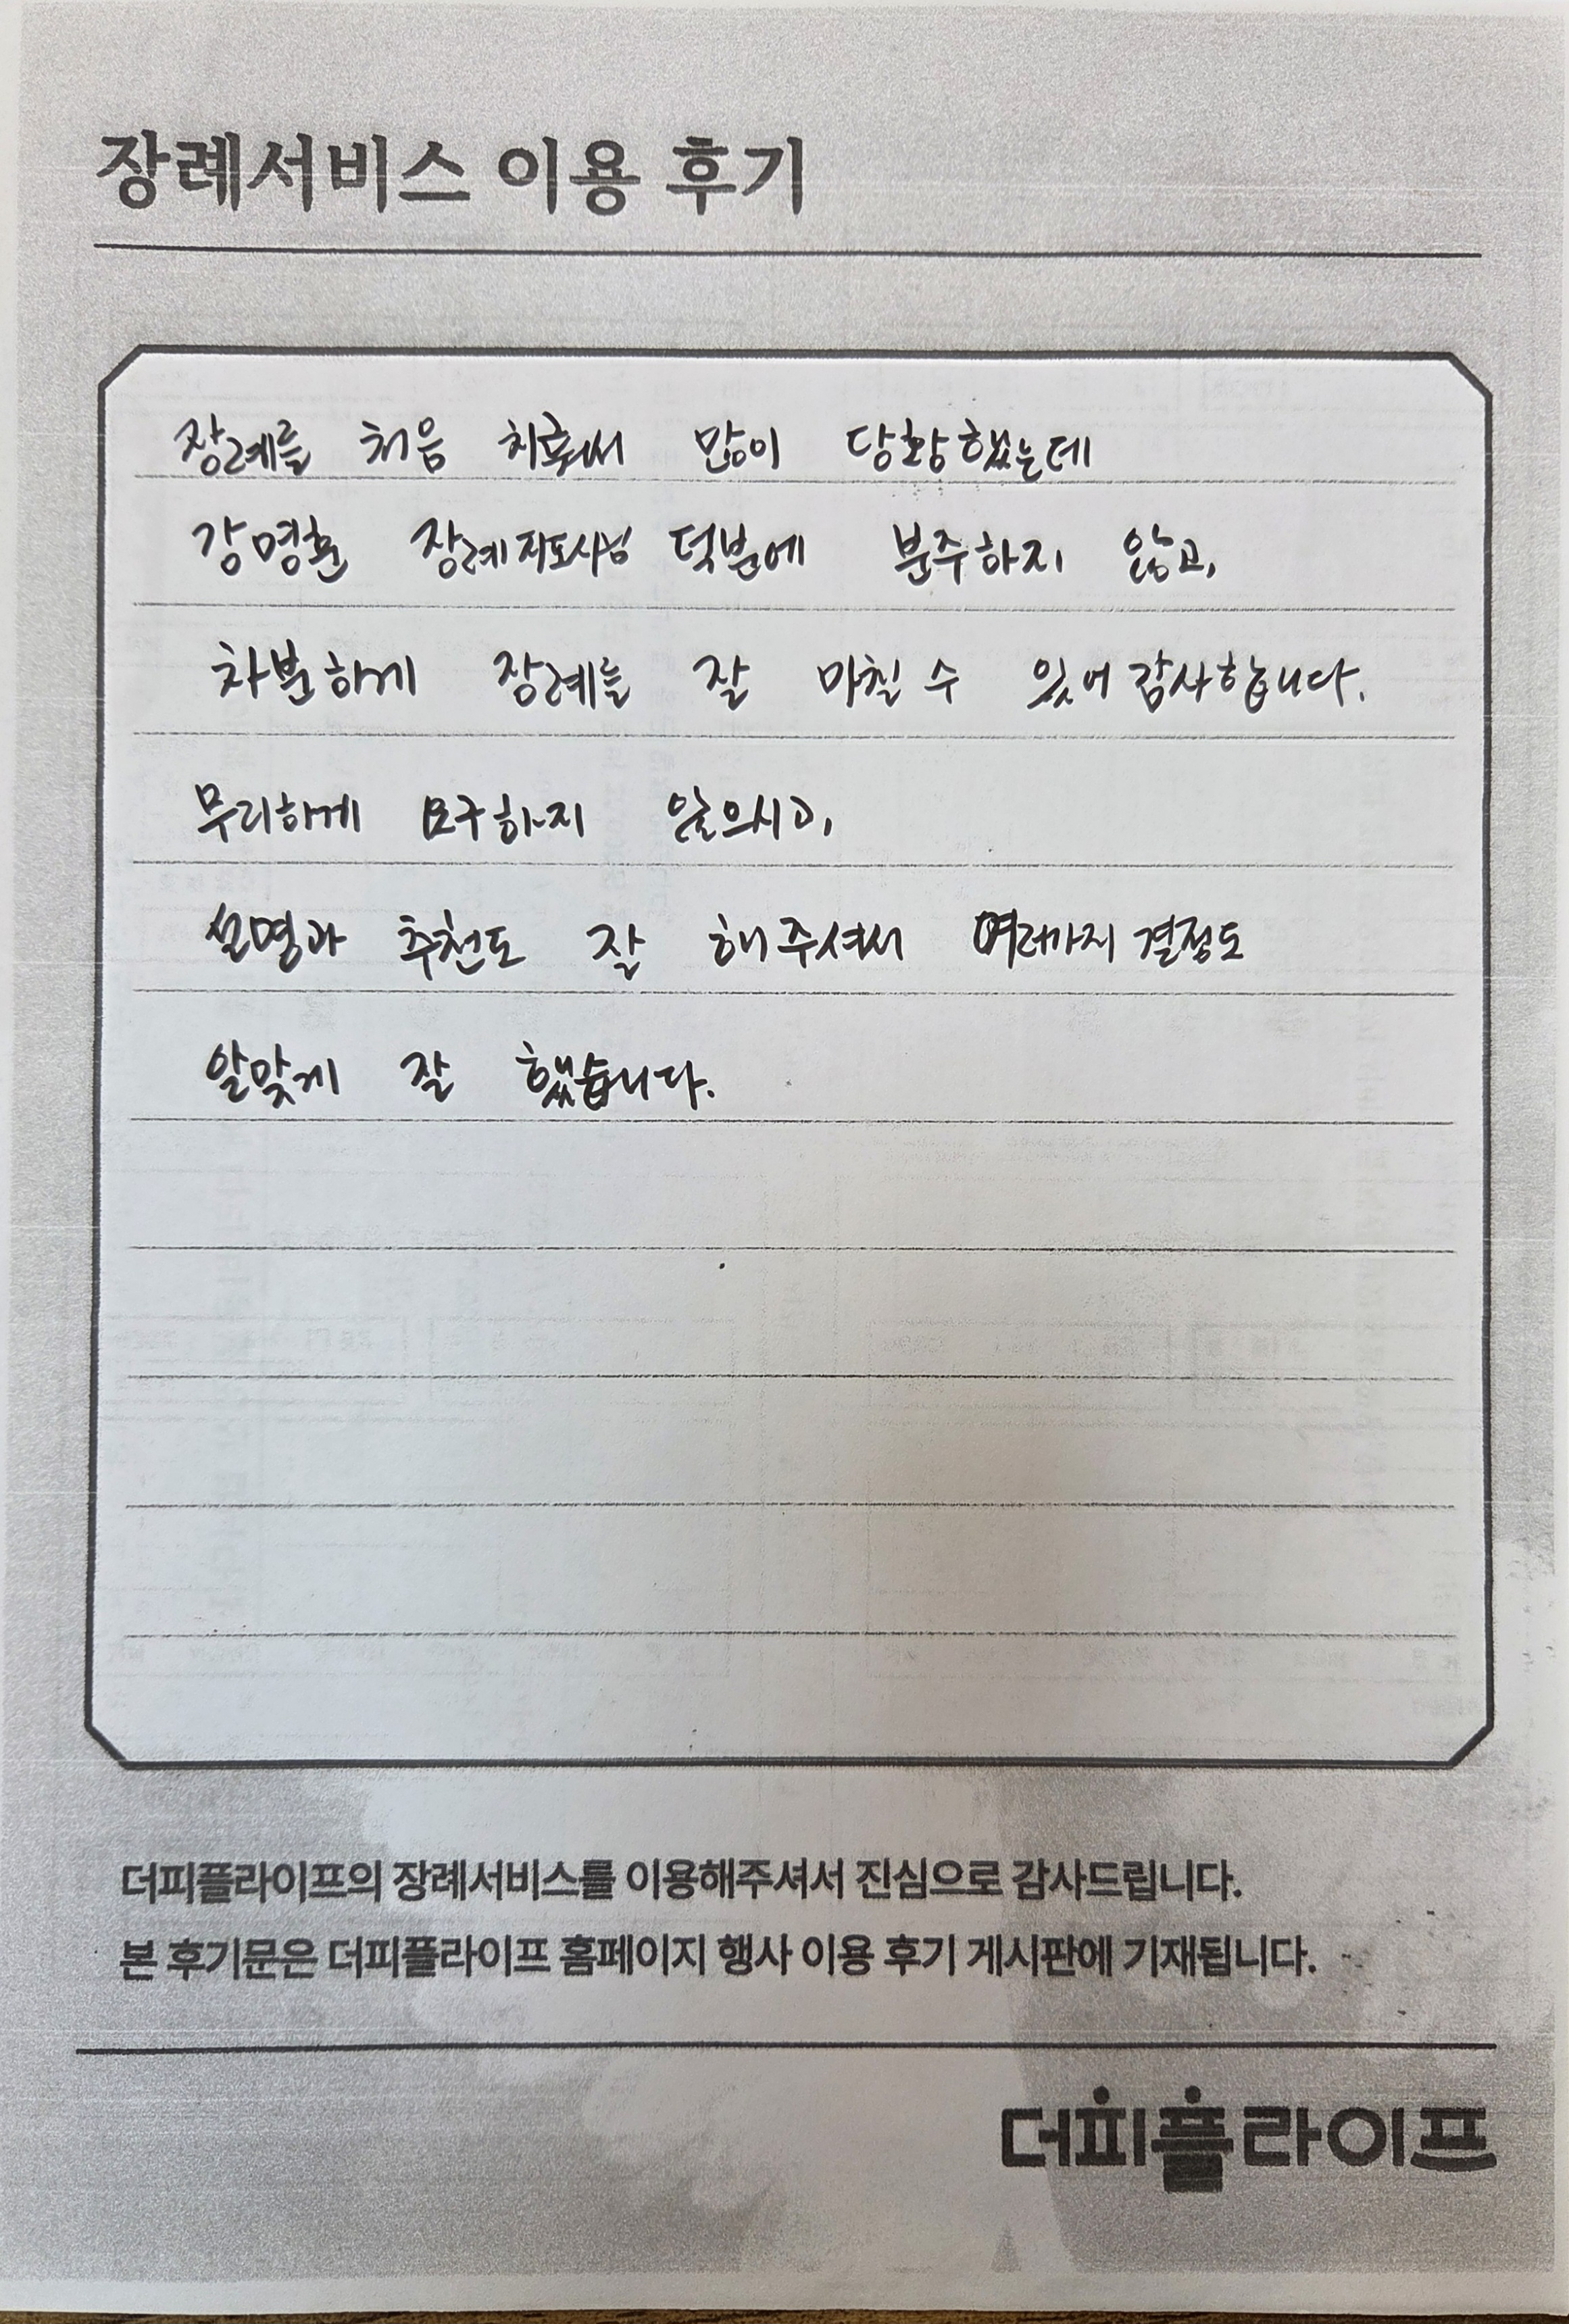 장례서비스 이용 후기
장례를 처음 치뤄서 많이 당황했는데
강명훈 장례지도사님 덕분에 분주하지 않고,
차분하게 장례를 잘 마칠 수 있어 감사합니다.
무리하게 요구하지 않으시고,
설명과 추천도 잘 해주셔서 여러가지 결정도
알맞게 잘 했습니다.
더피플라이프의 장례서비스를 이용해주셔서 진심으로 감사드립니다.
본 후기문은 더피플라이프 홈페이지 행사 이용 후기 게시판에 기재됩니다.
더피플라이프